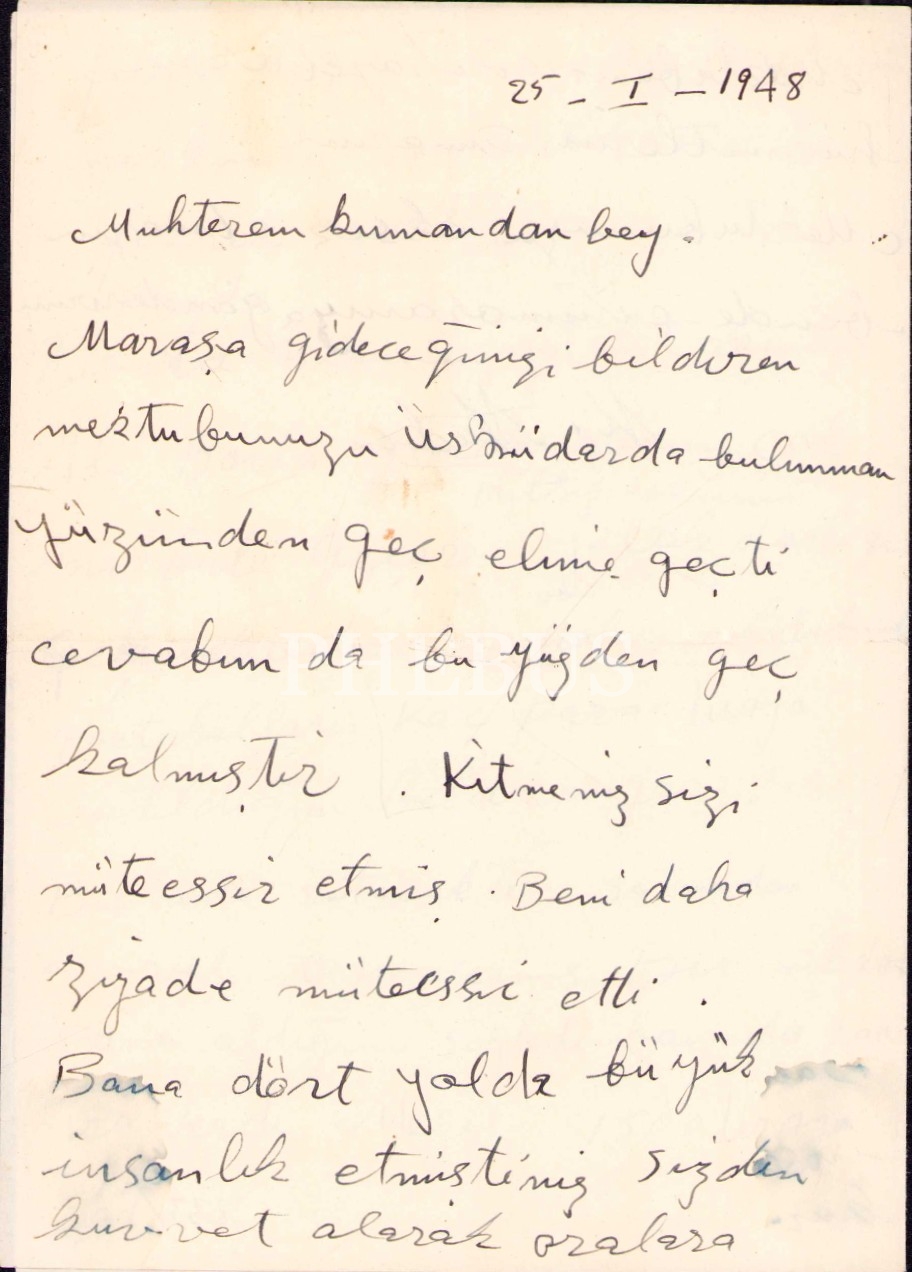 25 - I - 1948
Muhterem kumandan bey.
Maraşa gideceğinizi bildiren
mektubunuzu Üsküdarda bulunmam
yüzünden geç elime geçti
cevabım da bu yüzden geç
PHEBUS
kalmıştır. Kitmeniz sizi
müteessir etmiş. Beni daha
ziyade müteessir etti.
Bana dört yolda büyük
insanlık etmiştiniz sizden
kuvvet alarak oralara